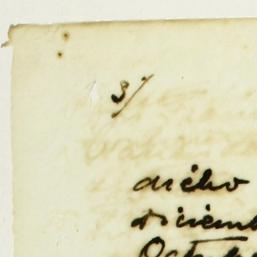 3/
dicho
diciemb
Octub